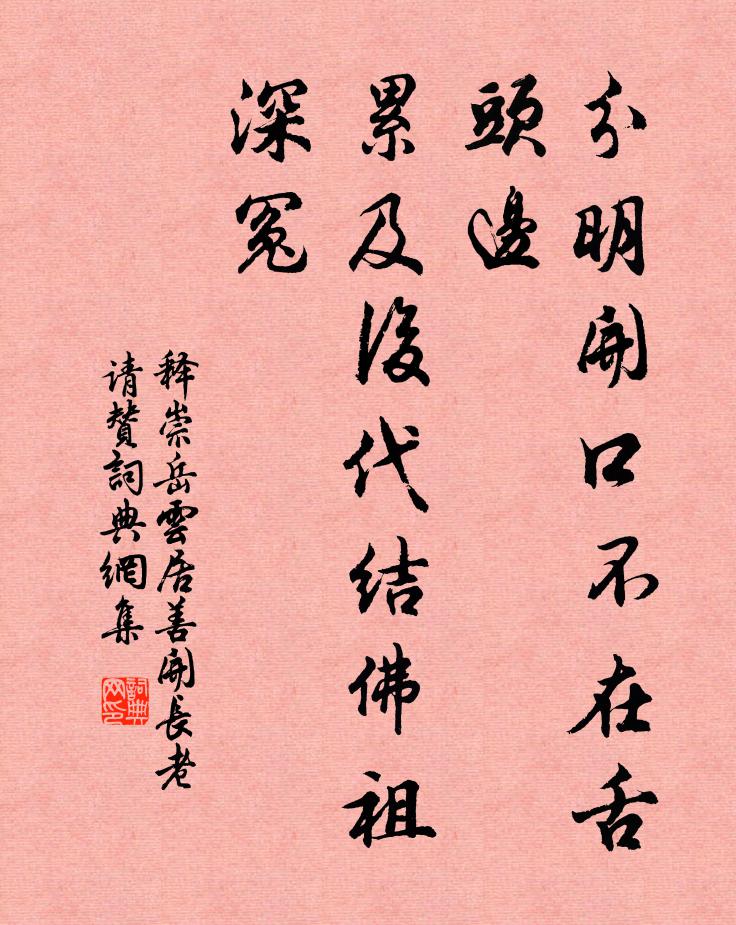 分明開口不在舌
頭邊
累及後代結佛祖
深冤
释崇岳雲居善開長老
请贊詞典網集
詞典
网印